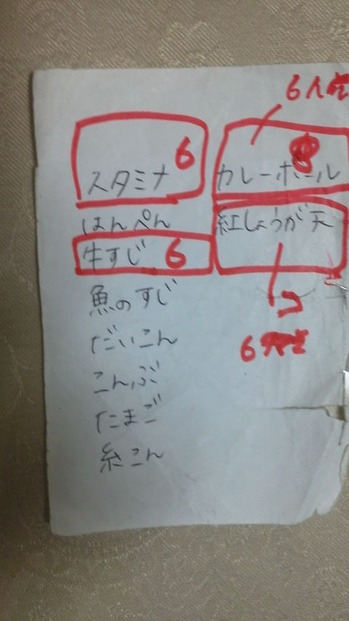 6人
スタミナ 6
カレーボール 8
はんぺん
紅しょうが天
牛すじ 6
魚のすじ
だいこん
こんぶ
たまご
糸こん
6コ